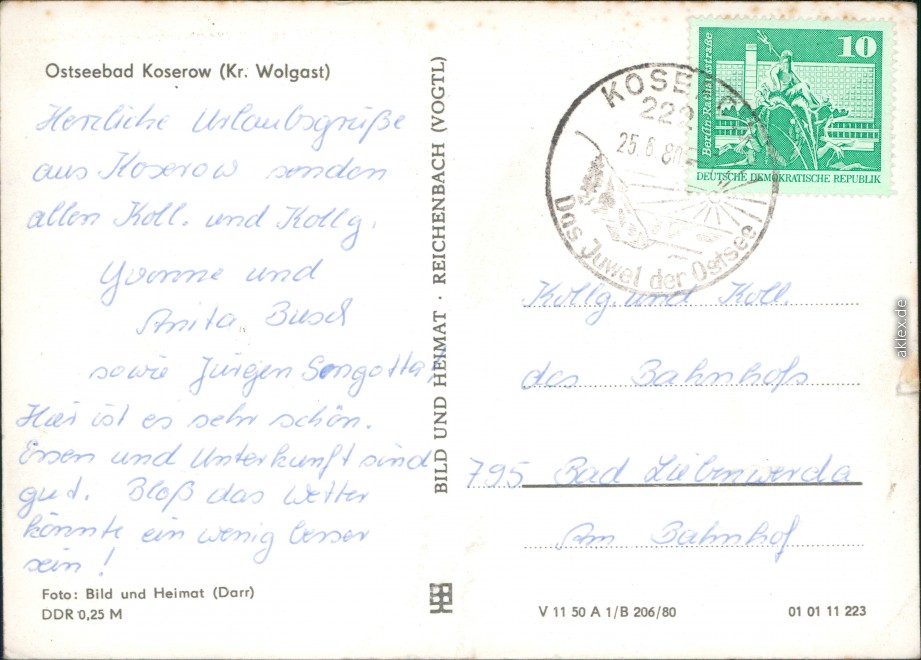 Ostseebad Koserow (Kr. Wolgast)
Herzliche Urlaubsgrüße
aus Koserow senden
allen Koll. und Kollg.
Yvonne und
Anita Busch
sowie Jürgen
Hier ist es sehr schön.
Essen und Unterkunft sind
gut. Bloß das Wetter
könnte ein wenig besser
sein!
Foto: Bild und Heimat (Darr)
DDR 0,25 M
BILD UND HEIMAT · REICHENBACH (VOGTL)
10
Berlin-Rathausstraße
DEUTSCHE DEMOKRATISCHE REPUBLIK
25.6.80
Das Juwel der Ostsee
Kollg und Koll.
des Bahnhofs
795 Bad Liebenwerda
Am Bahnhof
V 11 50 A 1/B 206/80
01 01 11 223
aklex.de